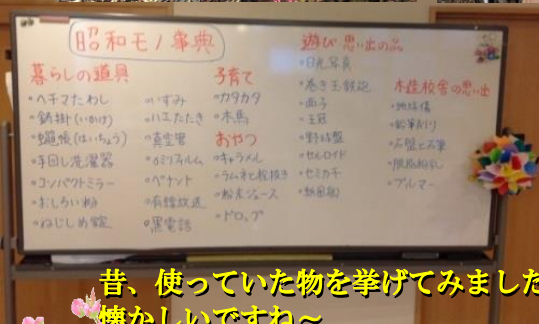 昭和モノ事典
暮らしの道具
・ヘチマたわし
・鋳掛(いかけ)
・蠅帳(はいちょう)
・手回し洗濯器
・コンパクトミラー
・おしろい粉
・ねじしめ錠
・いずみ
・ハエたたき
・真空管
・8ミリフィルム
・ペナント
・有線放送
・黒電話
子育て
・カタカタ
・木馬
おやつ
・キャラメル
・ラムネと栓抜き
・粉末ジュース
・ドロップ
遊び 思い出の品
・日光写真
・巻き玉鉄砲
・面子
・王冠
・野球盤
・セルロイド
・セミカチ
・紙風船
木造校舎の思い出
・地球儀
・鉛筆削り
・石盤と石筆
・脱脂粉乳
・ブルマー
昔、使っていた物を挙げてみました
懐かしいですね～